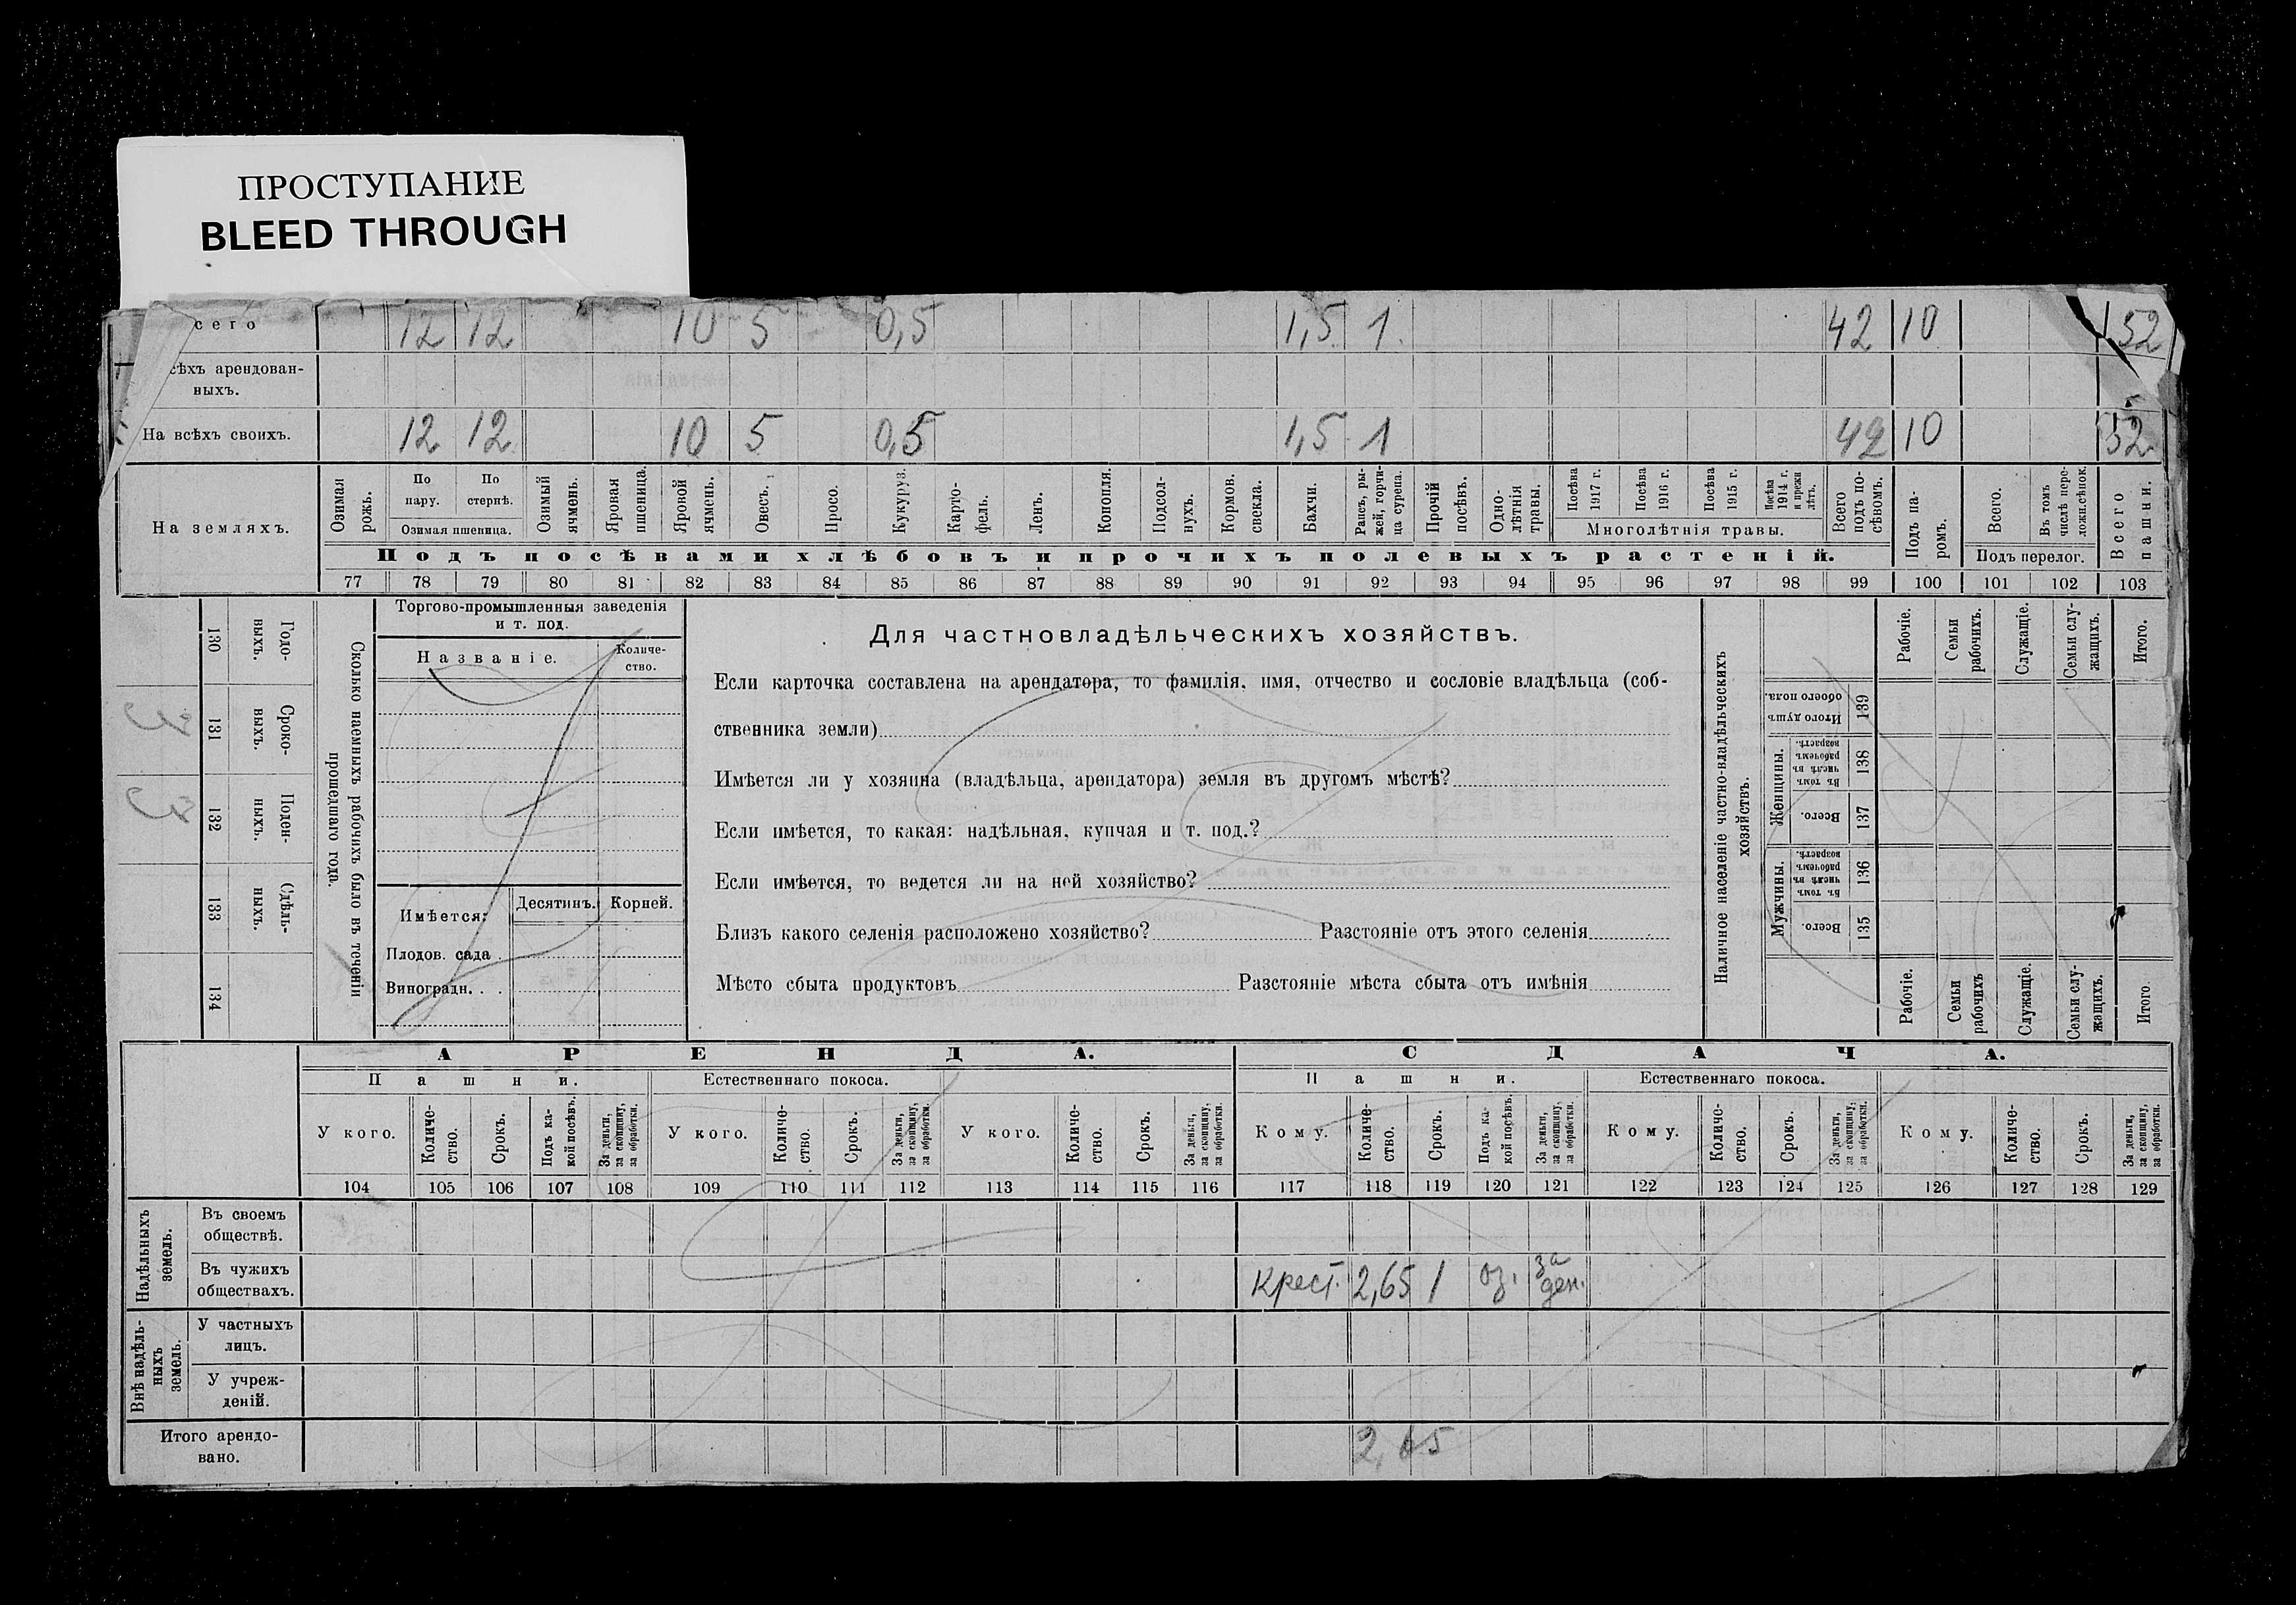 ПРОСТУПАНИЕ
BLEED THROUGH
сего 12 12 10 5 0,5 1,5 1 42 10 52
сѣхъ арендован-
ныхъ.
На всѣхъ своихъ. 12 12 10 5 0,5 1,5 1 42 10 52
На земляхъ.
Озимая рожь.
По пару.
По стернѣ.
Озимая пшеница.
Озимый ячмень.
Яровая пшеница.
Яровой ячмень.
Овесъ.
Просо.
Кукуруз.
Карто-фель.
Ленъ.
Конопля.
Подсол-нухъ.
Кормов. свекла.
Бахчи.
Рапсъ, ры-жей, горчи-ца сурепа.
Прочій посѣвъ.
Одно-лѣтнія травы.
Посѣва 1917 г.
Посѣва 1916 г.
Посѣва 1915 г.
Посѣва 1914 г. и прежн лѣтъ.
Многолѣтнія травы.
Всего подъ по-сѣвомъ.
Подъ па-ромъ.
Всего.
Въ томъ числѣ пере-ложн.сѣнок.
Подъ перелог.
Всего пашни.
Подъ посѣвами хлѣбовъ и прочихъ полевыхъ растеній.
77 78 79 80 81 82 83 84 85 86 87 88 89 90 91 92 93 94 95 96 97 98 99 100 101 102 103
130 Годо-выхъ.
3 131 Сроко-выхъ.
3 132 Поден-ныхъ.
133 Сдѣль-ныхъ.
134
Сколько наемныхъ рабочихъ было въ теченіи
прошедшаго года.
Торгово-промышленныя заведенія
и т. под.
Названіе.
Количе-ство.
Имѣется:
Десятинъ.
Корней.
Плодов. сада
Виноградн. . .
Для частновладѣльческихъ хозяйствъ.
Если карточка составлена на арендатора, то фамилія, имя, отчество и сословіе владѣльца (соб-
ственника земли)
Имѣется ли у хозяина (владѣльца, арендатора) земля въ другомъ мѣстѣ?
Если имѣется, то какая: надѣльная, купчая и т. под.?
Если имѣется, то ведется ли на ней хозяйство?
Близъ какого селенія расположено хозяйство? Разстояніе отъ этого селенія
Мѣсто сбыта продуктовъ Разстояніе мѣста сбыта отъ имѣнія
Наличное населеніе частно-владѣльческихъ
хозяйствъ.
Рабочіе.
Семьи рабочихъ.
Служащіе.
Семьи слу-жащихъ.
Итого.
Итого душъ обоего пола. 139
Женщины.
Въ томъ числѣ въ рабочемъ возрастѣ. 138
Всего. 137
Мужчины.
Въ томъ числѣ въ рабочемъ возрастѣ. 136
Всего. 135
Рабочіе.
Семьи рабочихъ
Служащіе.
Семьи слу-жащихъ.
Итого.
АРЕНДА. СДАЧА.
Пашни. Естественнаго покоса. Пашни. Естественнаго покоса.
У кого.
Количе-ство.
Срокъ.
Подъ ка-кой посѣвъ.
За деньги, за скопщину, за обработки.
У кого.
Количе-ство.
Срокъ.
За деньги, за скопщину, за обработки.
У кого.
Количе-ство.
Срокъ.
За деньги, за скопщину, за обработки.
Кому.
Количе-ство.
Срокъ.
Подъ ка-кой посѣвъ.
За деньги, за скопщину, за обработки.
Кому.
Количе-ство.
Срокъ.
За деньги, за скопщину, за обработки.
Кому.
Количе-ство.
Срокъ.
За деньги, за скопщину, за обработки.
104 105 106 107 108 109 110 111 112 113 114 115 116 117 118 119 120 121 122 123 124 125 126 127 128 129
Надѣльныхъ земель.
Въ своемъ
обществѣ.
Въ чужихъ
обществахъ.
Крест. 2,65 1 оз. за ден.
Внѣ надѣль-ныхъ земель.
У частныхъ
лицъ.
У учреж-
деній.
Итого арендо-
вано.
2,65